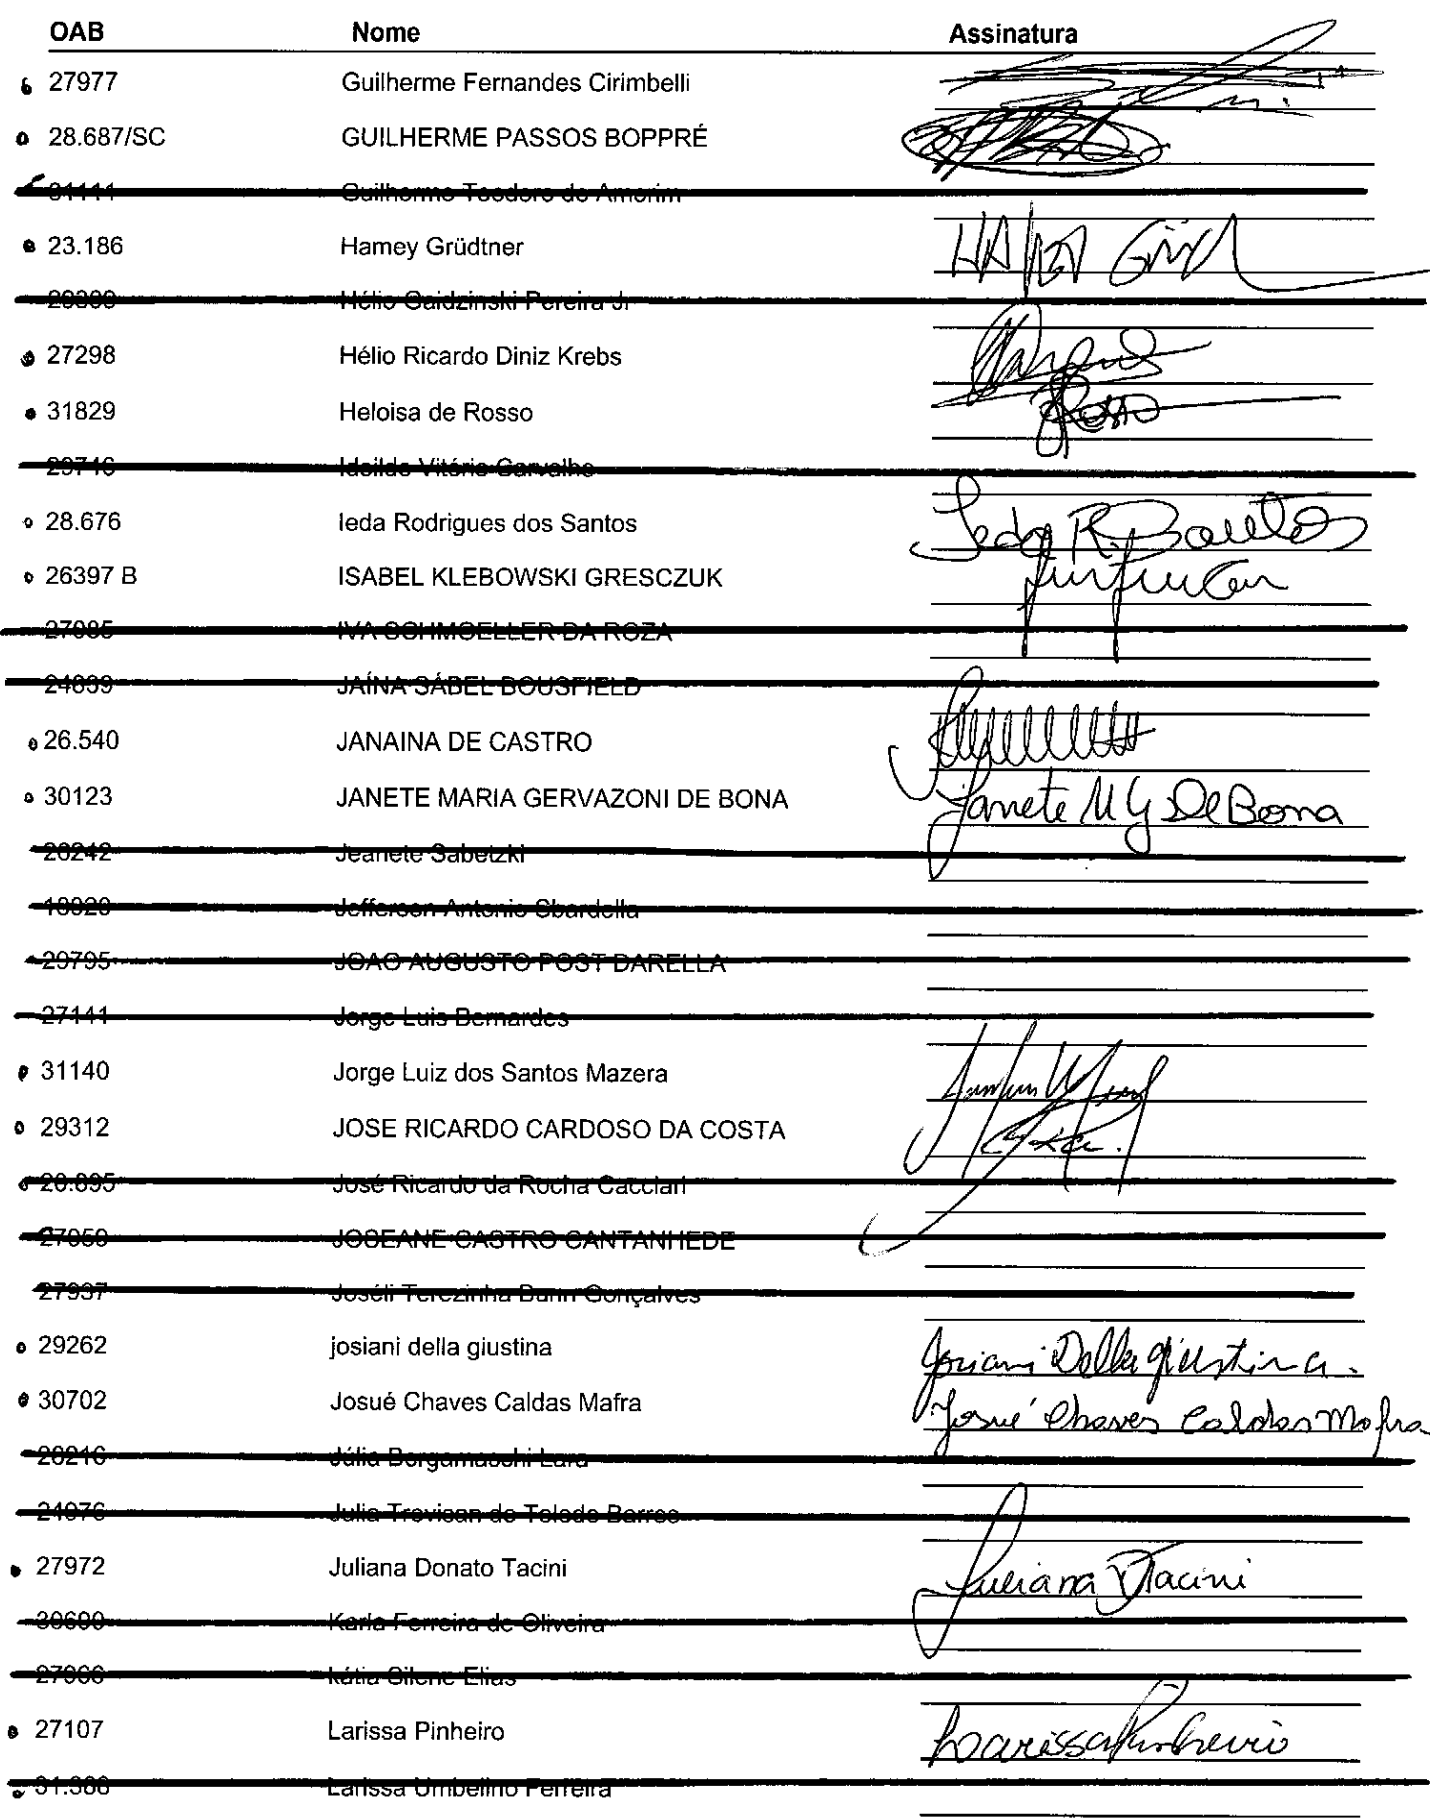 OAB Nome Assinatura
27977 Guilherme Fernandes Cirimbelli
28.687/SC GUILHERME PASSOS BOPPRÉ
31111 Guilherme Teodoro de Amorim
23.186 Hamey Grüdtner
Hélio Gaidzinski Pereira Jr
27298 Hélio Ricardo Diniz Krebs
31829 Heloisa de Rosso Rosso
29746 Vitório Carvalho
28.676 Ieda Rodrigues dos Santos Ieda R. Santos
26397 B ISABEL KLEBOWSKI GRESCZUK
27085 IVA SCHMOELLER DA ROZA
24839 JAÍNA SÁBEL BOUSFIELD
26.540 JANAINA DE CASTRO
30123 JANETE MARIA GERVAZONI DE BONA Janete M G De Bona
26242 Jeanete Sabetzki
18920 Jefferson Antonio Sbardella
29795 JOAO AUGUSTO POST DARELLA
27141 Jorge Luis Bernardes
31140 Jorge Luiz dos Santos Mazera
29312 JOSE RICARDO CARDOSO DA COSTA
28.895 José Ricardo da Rocha Cacciari
27050 JOSEANE CASTRO CANTANHEDE
27937 Joséli Terezinha Bunn Gonçalves
29262 josiani della giustina Josiani Della giustina.
30702 Josué Chaves Caldas Mafra Josué Chaves Caldas Mafra
26216 Júlia Bergamaschi Lara
24976 Julia Trevisan de Toledo Barros
27972 Juliana Donato Tacini Juliana DTacini
30690 Karla Ferreira de Oliveira
27066 kátia Silene Elias
27107 Larissa Pinheiro Larissa Pinheiro
31.388 Larissa Umbelino Ferreira